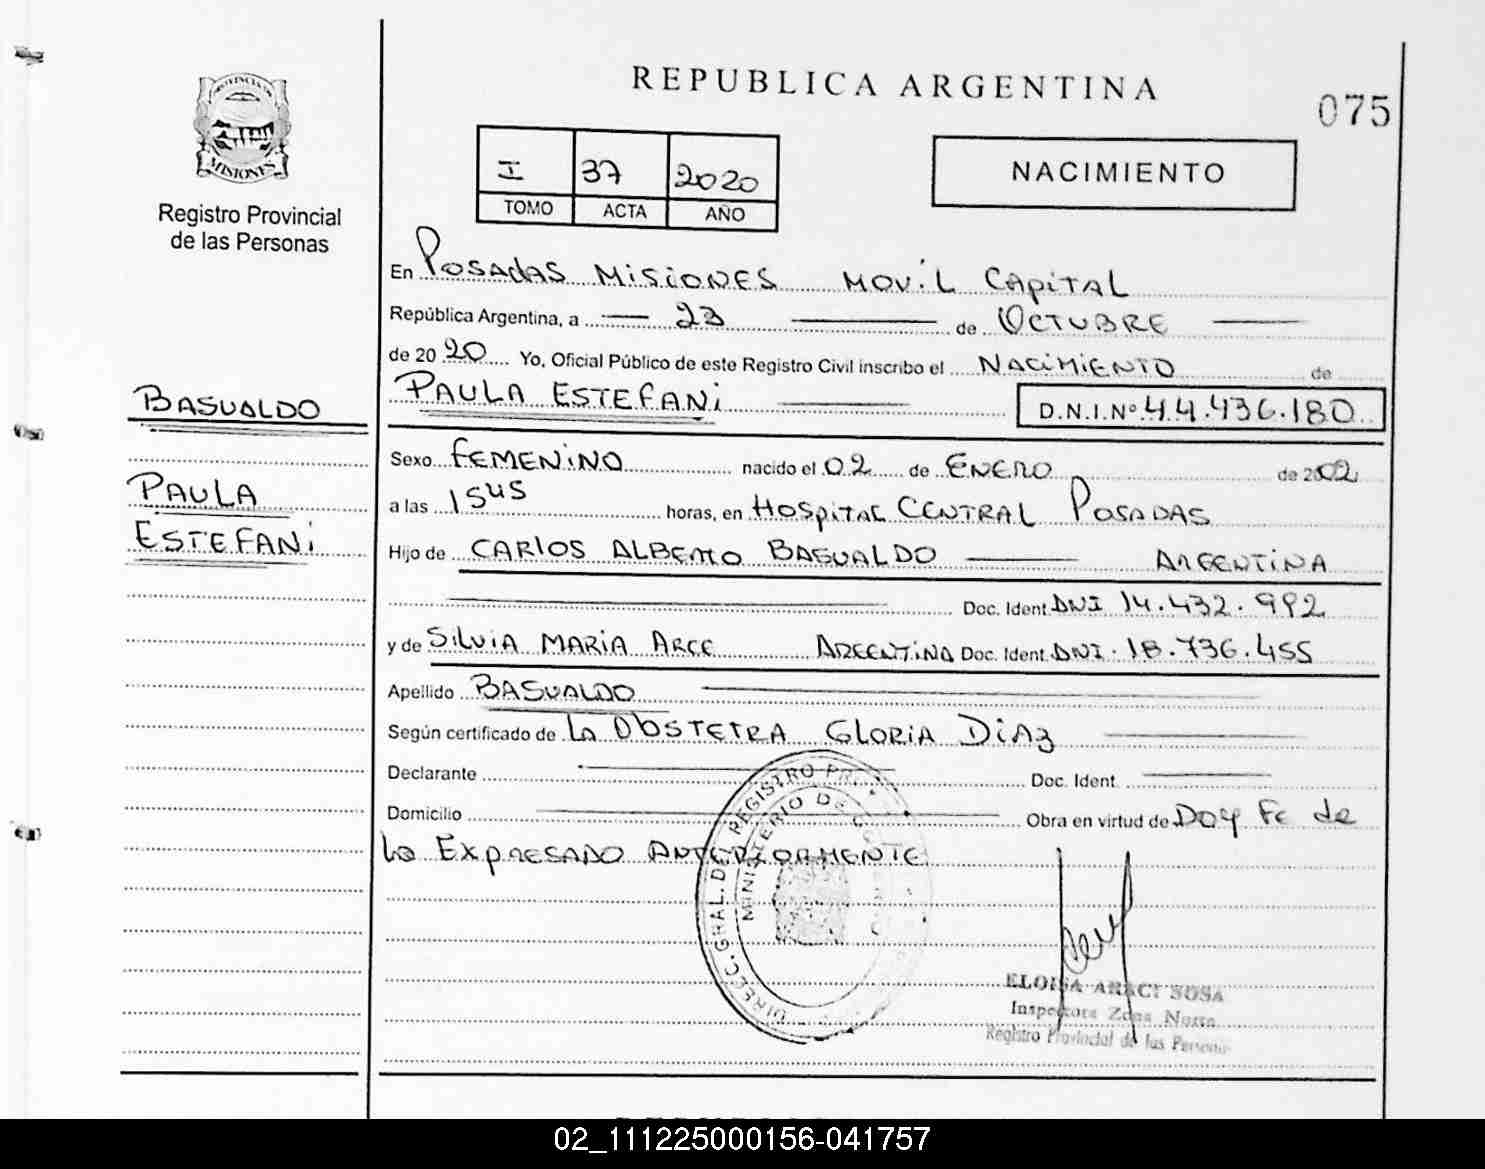 PROVINCIA DE
MISIONES
Registro Provincial
de las Personas
BASUALDO
PAULA
ESTEFANI
REPUBLICA ARGENTINA
075
I 37 2020
TOMO ACTA AÑO
NACIMIENTO
En POSADAS MISIONES MOVIL CAPITAL
República Argentina, a 23 de OCTUBRE
de 20 20 Yo, Oficial Público de este Registro Civil inscribo el NACIMIENTO de
PAULA ESTEFANI D.N.I.Nº 44.436.180
Sexo FEMENINO nacido el 02 de ENERO de 2002
a las 1545 horas, en HOSPITAL CENTRAL POSADAS
Hijo de CARLOS ALBERTO BASUALDO ARGENTINA
Doc. Ident. DNI 14.432.992
y de SILVIA MARIA ARCE ARGENTINA Doc. Ident. DNI. 18.736.455
Apellido BASUALDO
Según certificado de LA OBSTETRA GLORIA DIAZ
Declarante Doc. Ident.
Domicilio Obra en virtud de DOY FE de
LO EXPRESADO ANTERIORMENTE
DIRECC. GRAL. DE REGISTRO
MINISTERIO DE
ELOISA ARACI SOSA
Inspectora Zona Norte
Registro Provincial de las Personas
02_111225000156-041757